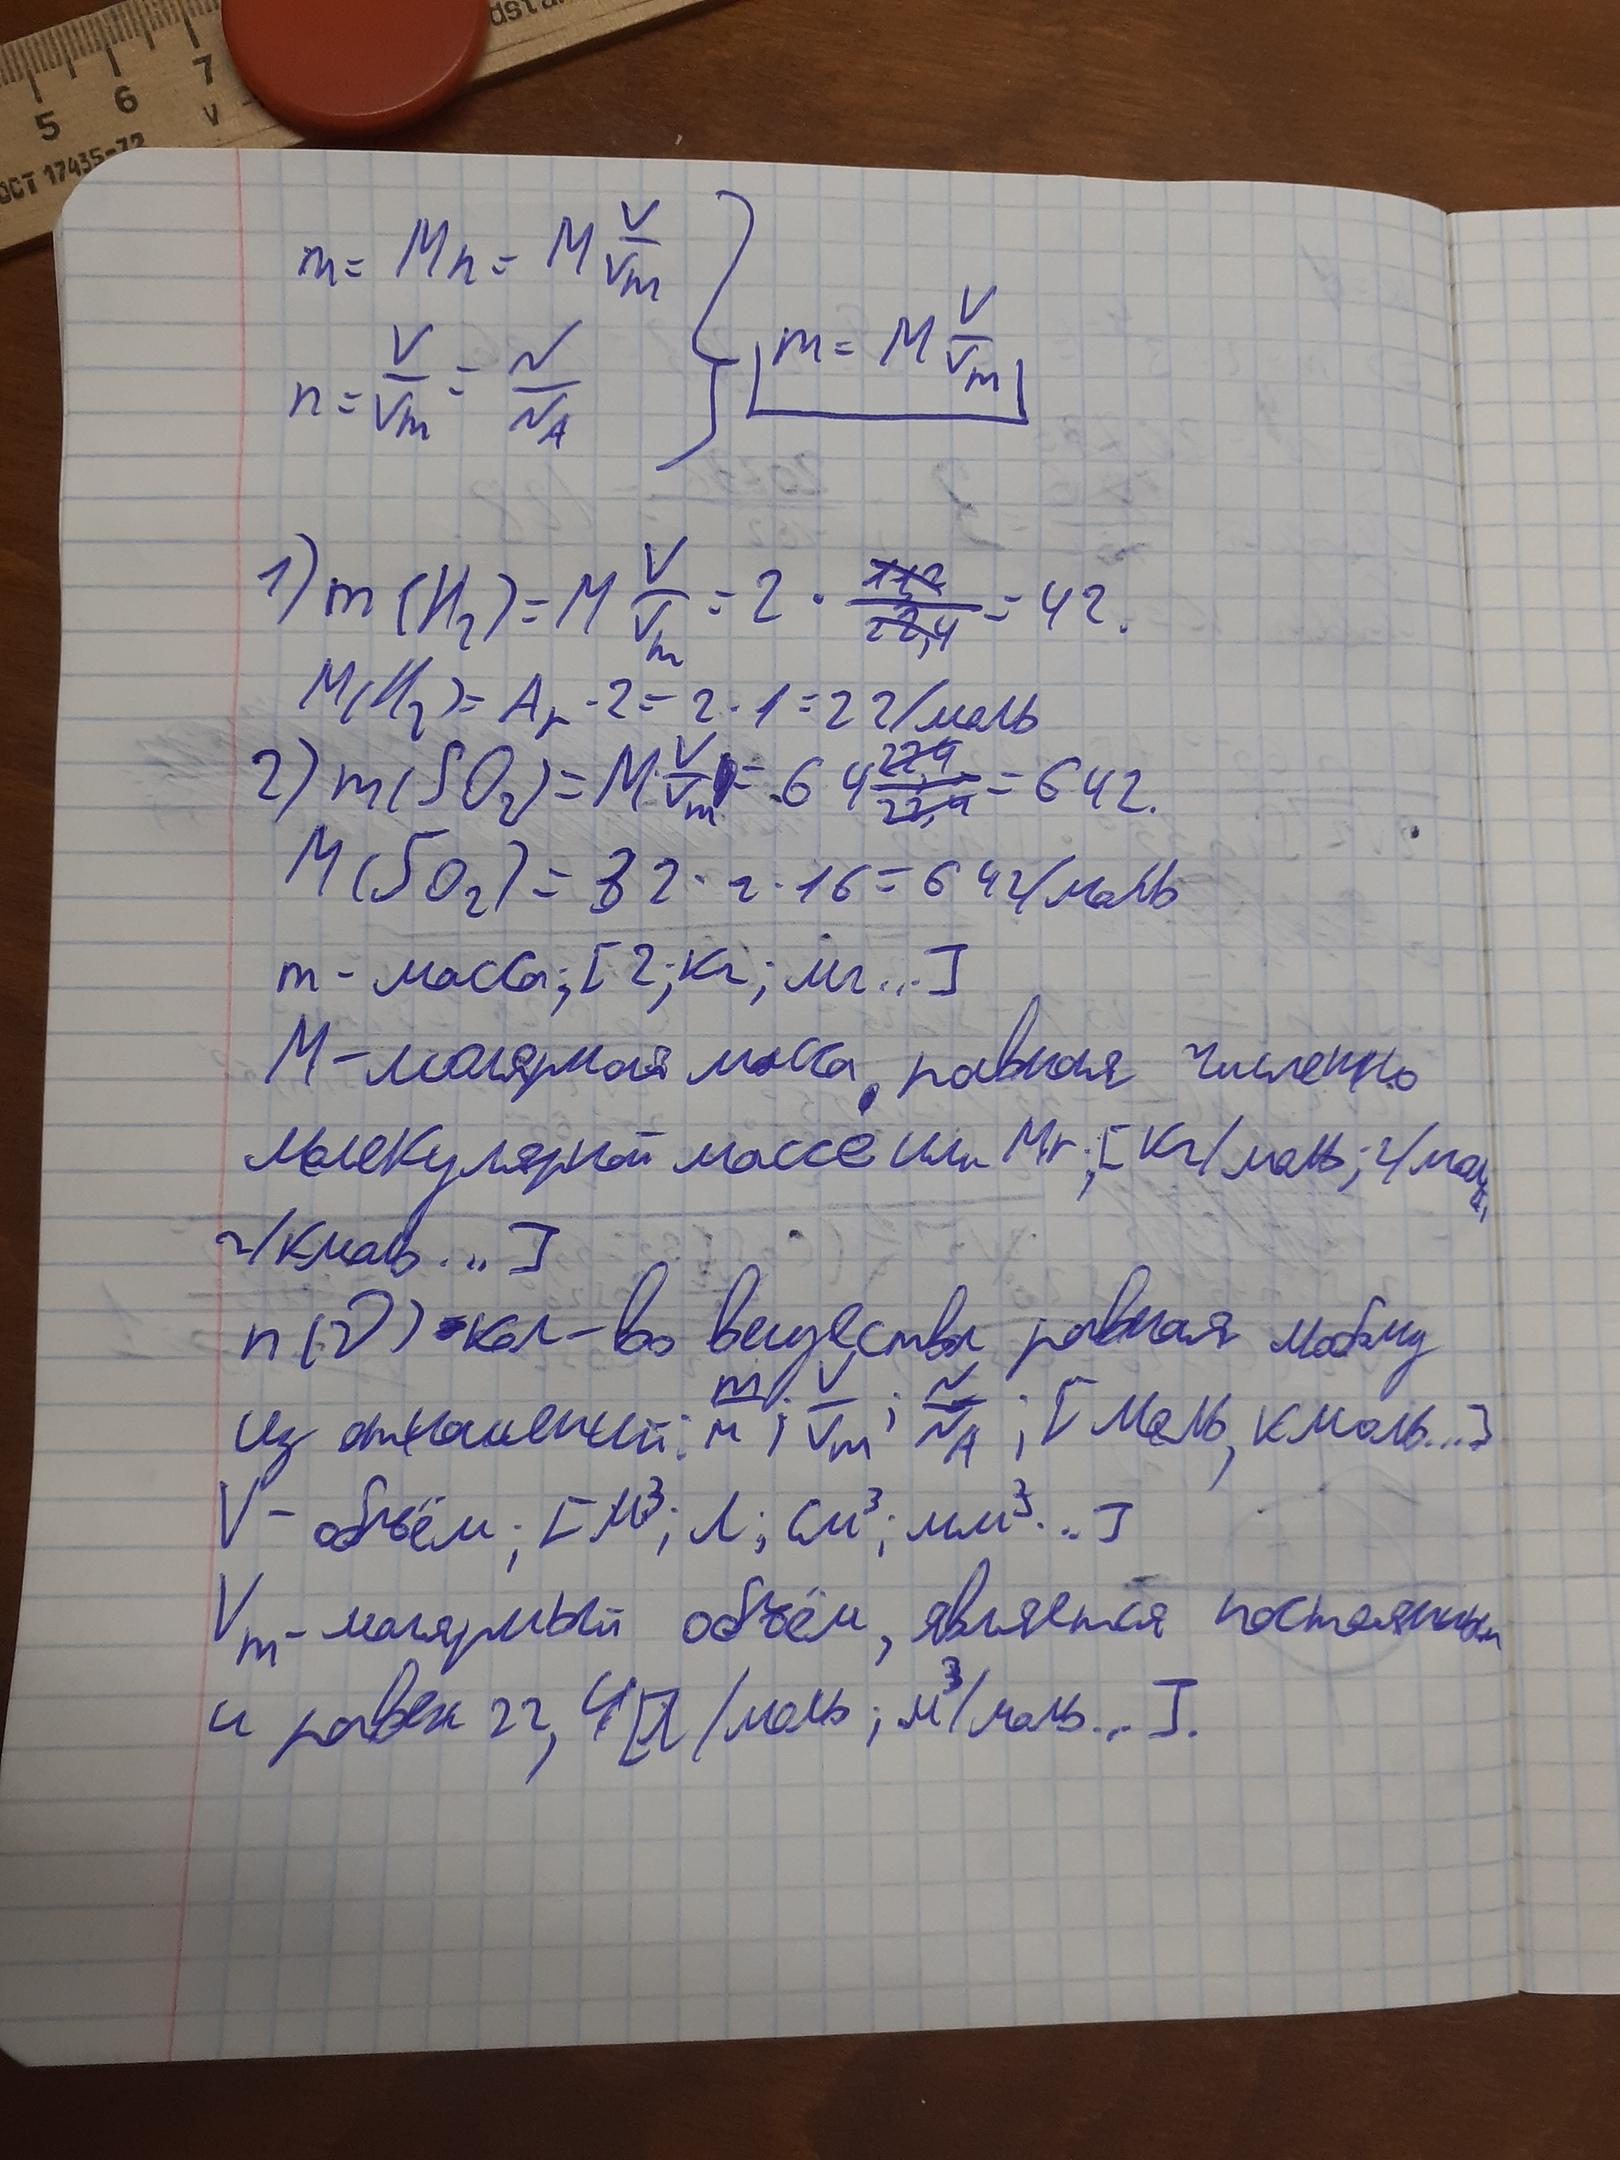 5 6 7
ОСТ 17435-72
m = Mn = M V/Vm
n = V/Vm = N/NA
m = M V/Vm
1) m(H₂) = M V/Vm = 2 · 112/22,4 = 4г.
M(H₂) = Ar · 2 = 2 · 1 = 2 г/моль
2) m(SO₂) = M V/Vm = 64 22,4/22,4 = 64г.
M(SO₂) = 32 · 2 · 16 = 64 г/моль
m - масса; [г; кг; мг...]
M - молярная масса, равная численно
молекулярной массе или Mr; [кг/моль; г/моль,
г/кмоль...]
n(ν) - кол-во вещества равная любому
из отношений: m/M; V/Vm; N/NA; [моль, кмоль...]
V - объём; [м³; л; см³; мм³...]
Vm - молярный объём, является постоянным
и равен 22,4 [л/моль; м³/моль...].